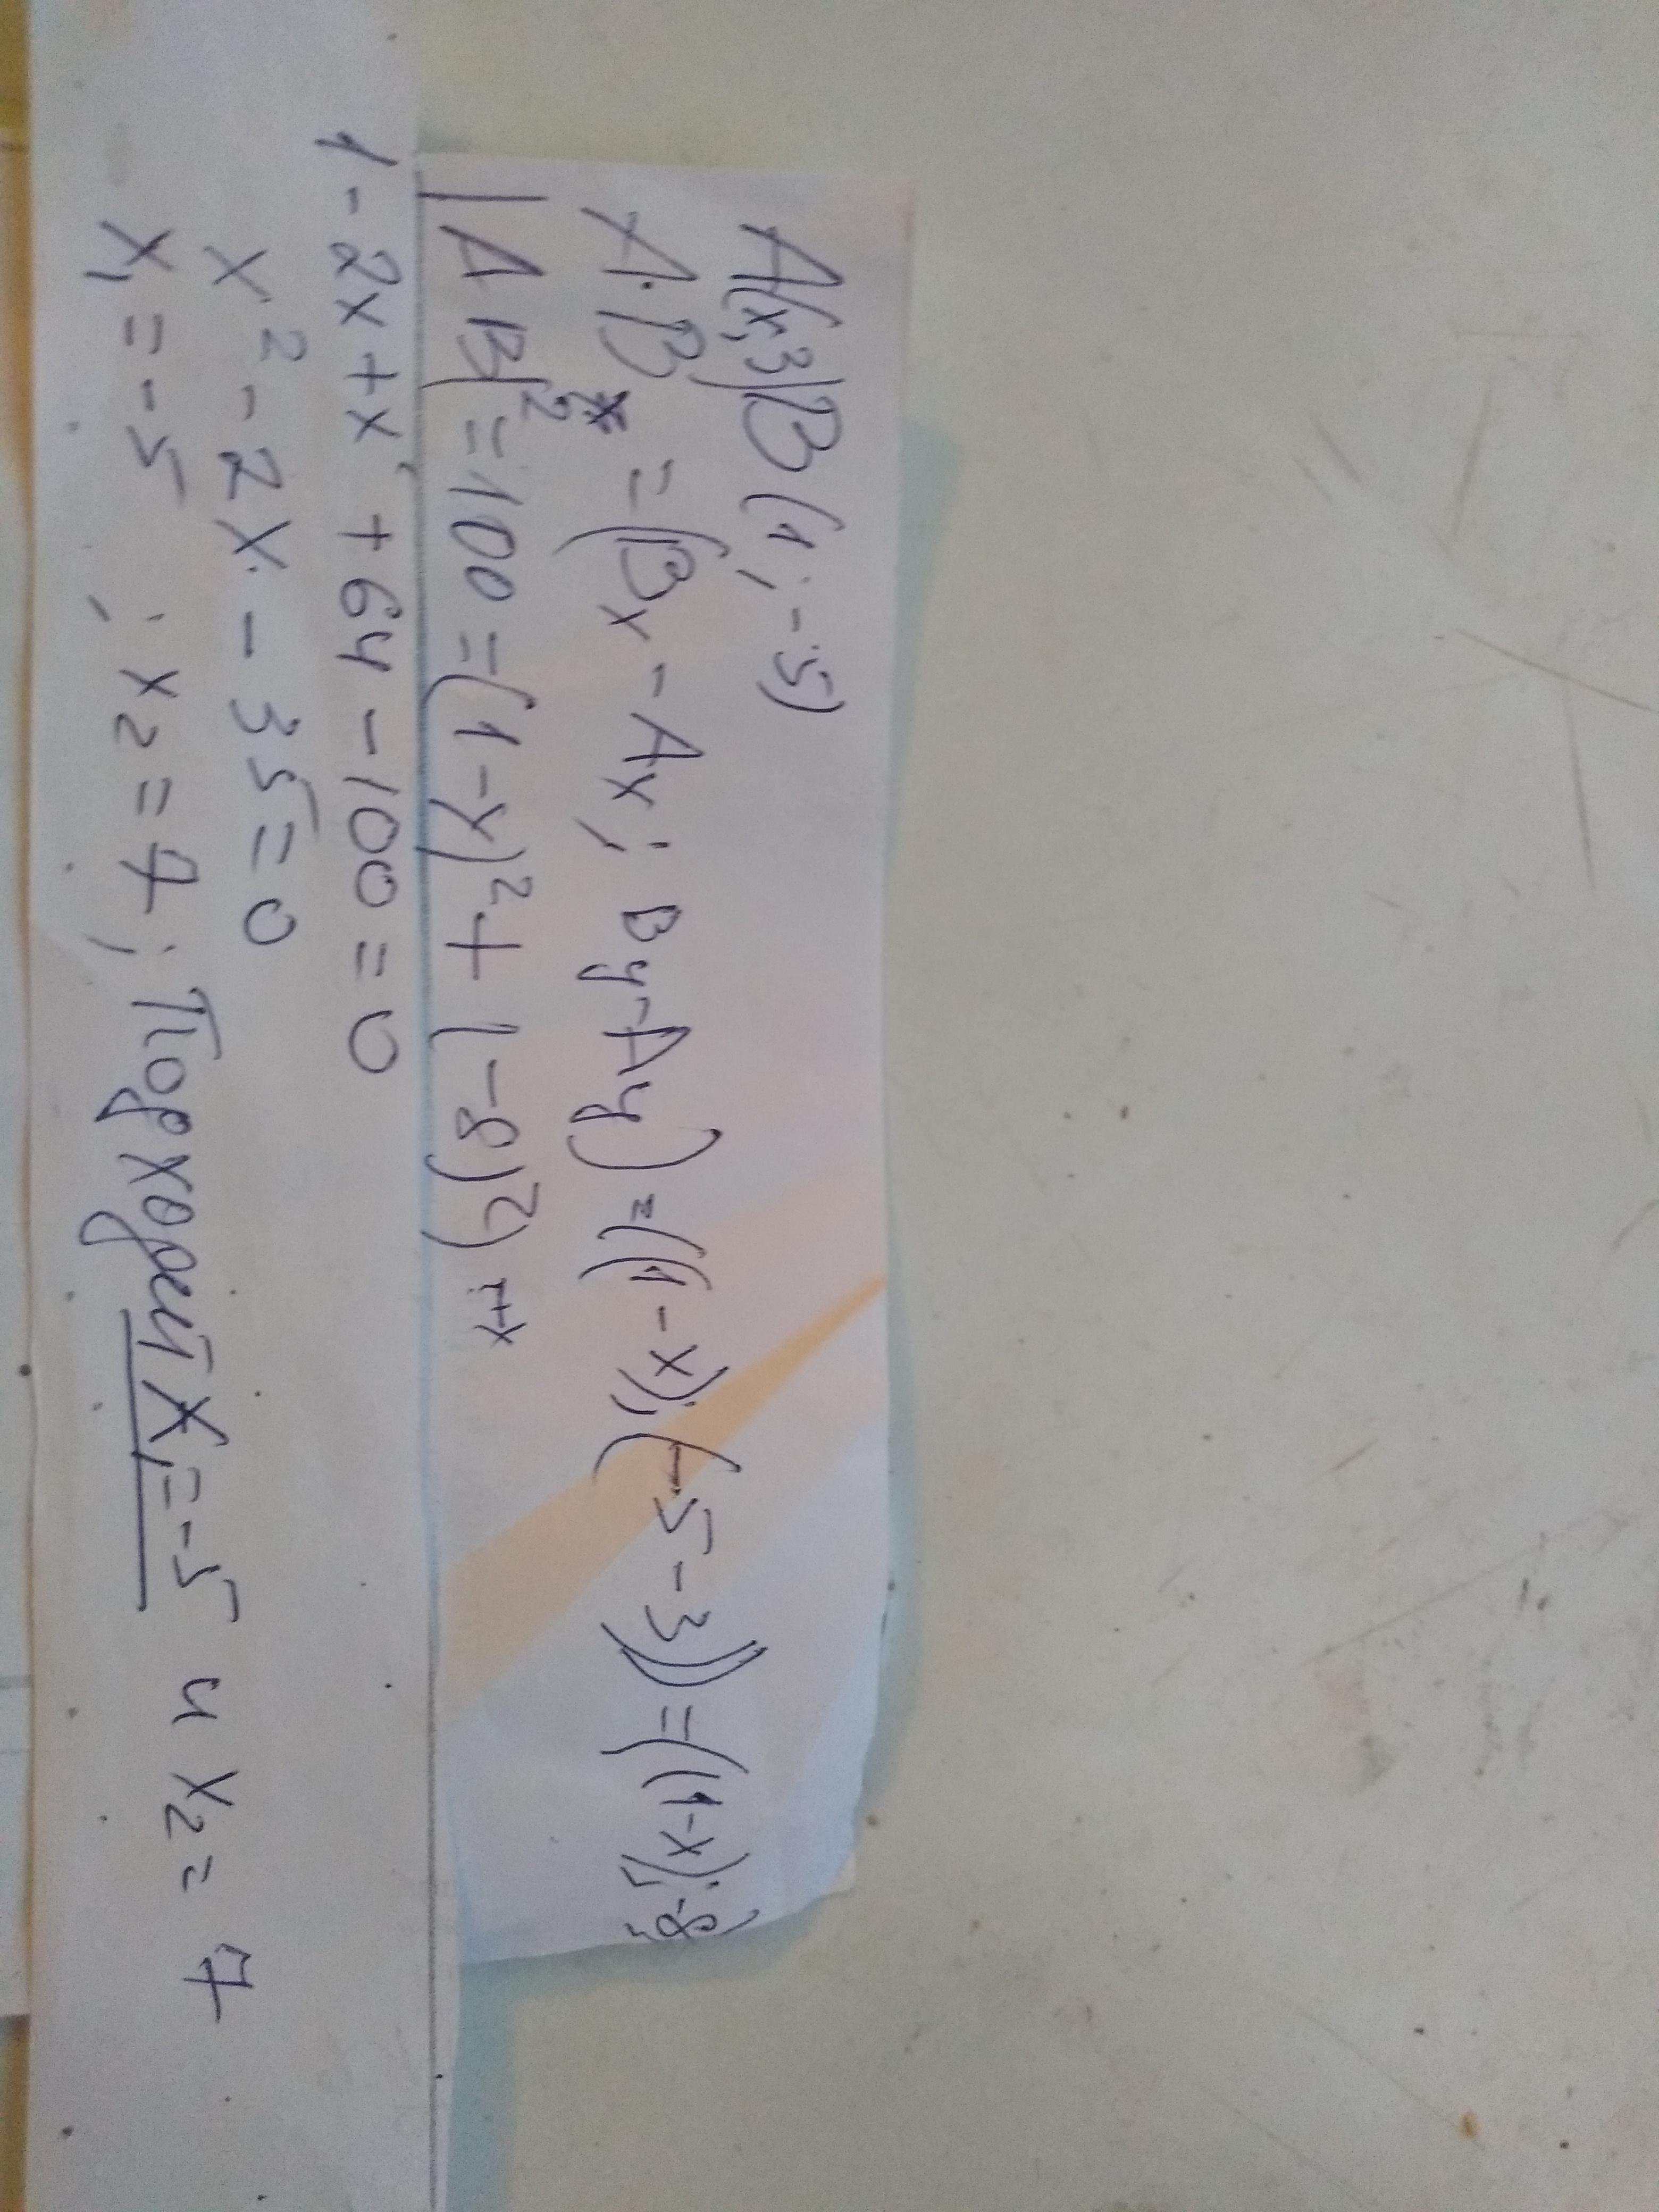 A(x;3) B(1;-5)
A·B = (Bx - Ax; By-Ay) = ((1-x); (-5-3)) = ((1-x);-8)
|AB|² = 100 = (1-x)²+(-8)²)
1-2x+x² + 64 - 100 = 0
x² - 2x - 35 = 0
x₁ = -5 ; x₂ = 7; Подходит x₁=-5 и x₂ = 7